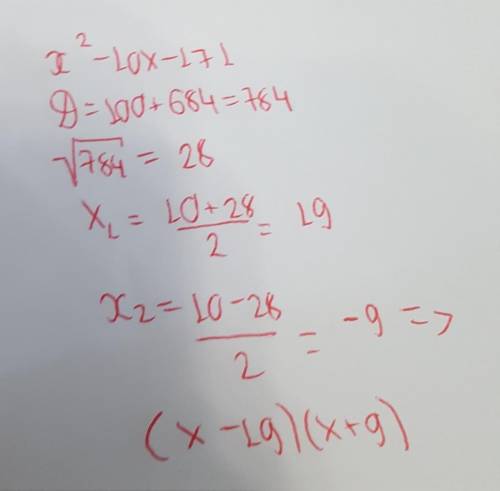 x² - 10x - 171
D = 100 + 684 = 784
√784 = 28
x₁ = (10 + 28)/2 = 19
x₂ = (10 - 28)/2 = -9 =>
(x - 19)(x + 9)